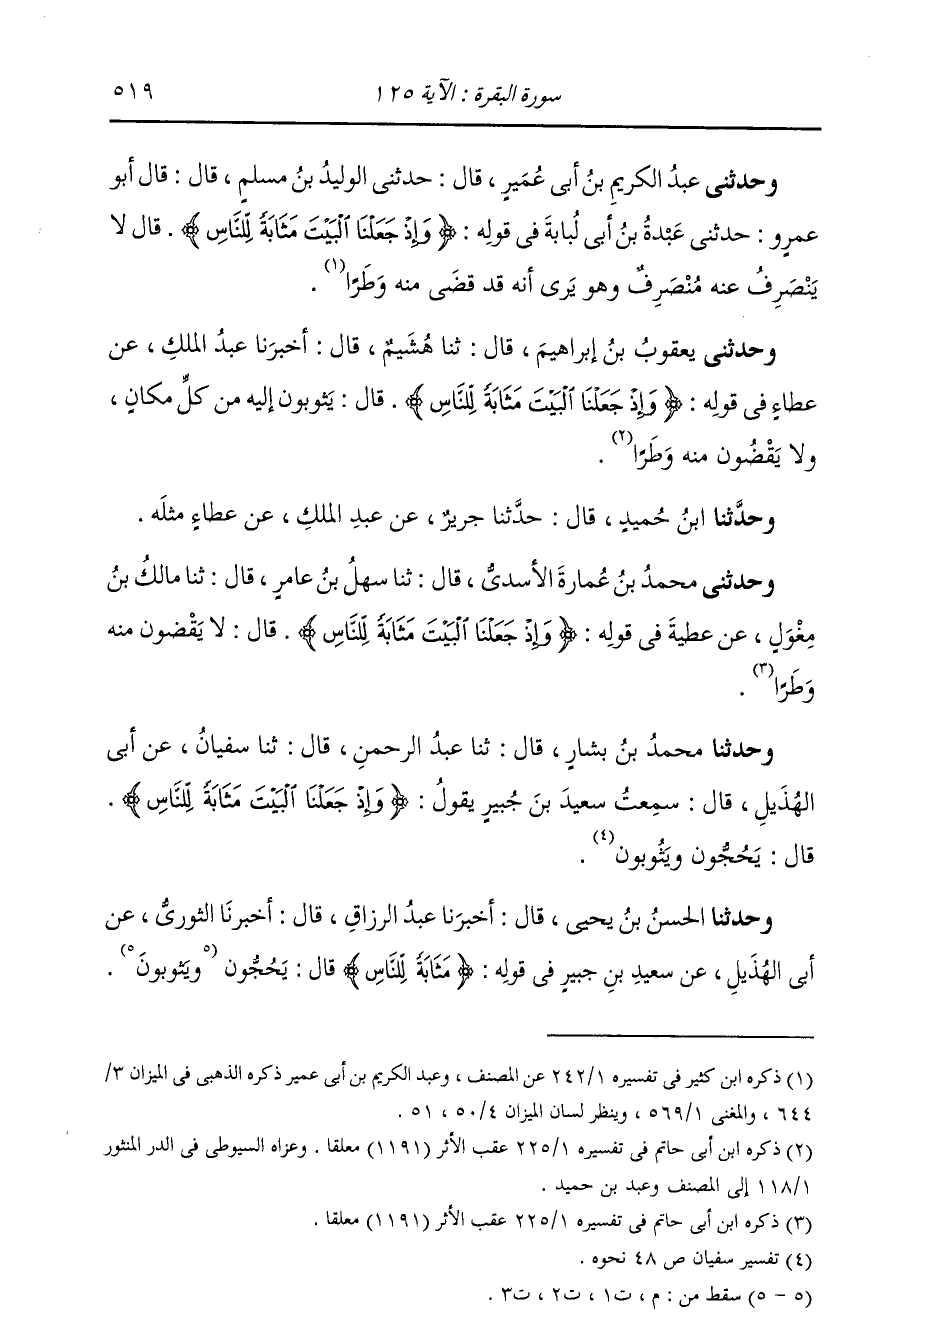 سورة البقرة : الآية ١٢٥ ٥١٩
وحدثنى عبدُ الكريمِ بنُ أبى عُمَيرٍ ، قال : حدثنى الوليدُ بنُ مسلمٍ ، قال : قال أبو
عمرٍو : حدثنى عَبْدةُ بنُ أبى لُبابةَ فى قولِه : ﴿ وَإِذْ جَعَلْنَا ٱلْبَيْتَ مَثَابَةً لِّلنَّاسِ ﴾ . قال لا
يَنْصَرِفُ عنه مُنْصَرِفٌ وهو يَرى أنه قد قضَى منه وَطَرًا (١) .
وحدثنى يعقوبُ بنُ إبراهيمَ ، قال : ثنا هُشَيمٌ ، قال : أخبرَنا عبدُ الملكِ ، عن
عطاءٍ فى قولِه : ﴿ وَإِذْ جَعَلْنَا ٱلْبَيْتَ مَثَابَةً لِّلنَّاسِ ﴾ . قال : يَثوبون إليه من كلِّ مكانٍ ،
ولا يَقْضُون منه وَطَرًا (٢) .
وحدَّثنا ابنُ حُميدٍ ، قال : حدَّثنا جريرٌ ، عن عبدِ الملكِ ، عن عطاءٍ مثلَه .
وحدثنى محمدُ بنُ عُمارةَ الأسدىُّ ، قال : ثنا سهلُ بنُ عامرٍ ، قال : ثنا مالكُ بنُ
مِغْوَلٍ ، عن عطيةَ فى قولِه : ﴿ وَإِذْ جَعَلْنَا ٱلْبَيْتَ مَثَابَةً لِّلنَّاسِ ﴾ . قال : لا يَقْضون منه
وَطَرًا (٣) .
وحدثنا محمدُ بنُ بشارٍ ، قال : ثنا عبدُ الرحمنِ ، قال : ثنا سفيانُ ، عن أبى
الهُذَيلِ ، قال : سمِعتُ سعيدَ بنَ جُبيرٍ يقولُ : ﴿ وَإِذْ جَعَلْنَا ٱلْبَيْتَ مَثَابَةً لِّلنَّاسِ ﴾ .
قال : يَحُجُّون ويَثُوبون (٤) .
وحدثنا الحسنُ بنُ يحيى ، قال : أخبرَنا عبدُ الرزاقِ ، قال : أخبرنَا الثورىُّ ، عن
أبى الهُذَيلِ ، عن سعيدِ بنِ جبيرٍ فى قولِه : ﴿ مَثَابَةً لِّلنَّاسِ ﴾ قال : يَحُجُّون (٥ ويَثوبونَ ٥) .
(١) ذكره ابن كثير فى تفسيره ٢٤٢/١ عن المصنف ، وعبد الكريم بن أبى عمير ذكره الذهبى فى الميزان ٣/
٦٤٤ ، والمغنى ٥٦٩/١ ، وينظر لسان الميزان ٥٠/٤ ، ٥١ .
(٢) ذكره ابن أبى حاتم فى تفسيره ٢٢٥/١ عقب الأثر (١١٩١) معلقا . وعزاه السيوطى فى الدر المنثور
١١٨/١ إلى المصنف وعبد بن حميد .
(٣) ذكره ابن أبى حاتم فى تفسيره ٢٢٥/١ عقب الأثر (١١٩١) معلقا .
(٤) تفسير سفيان ص ٤٨ نحوه .
(٥ - ٥) سقط من : م ، ت١ ، ت٢ ، ت٣ .